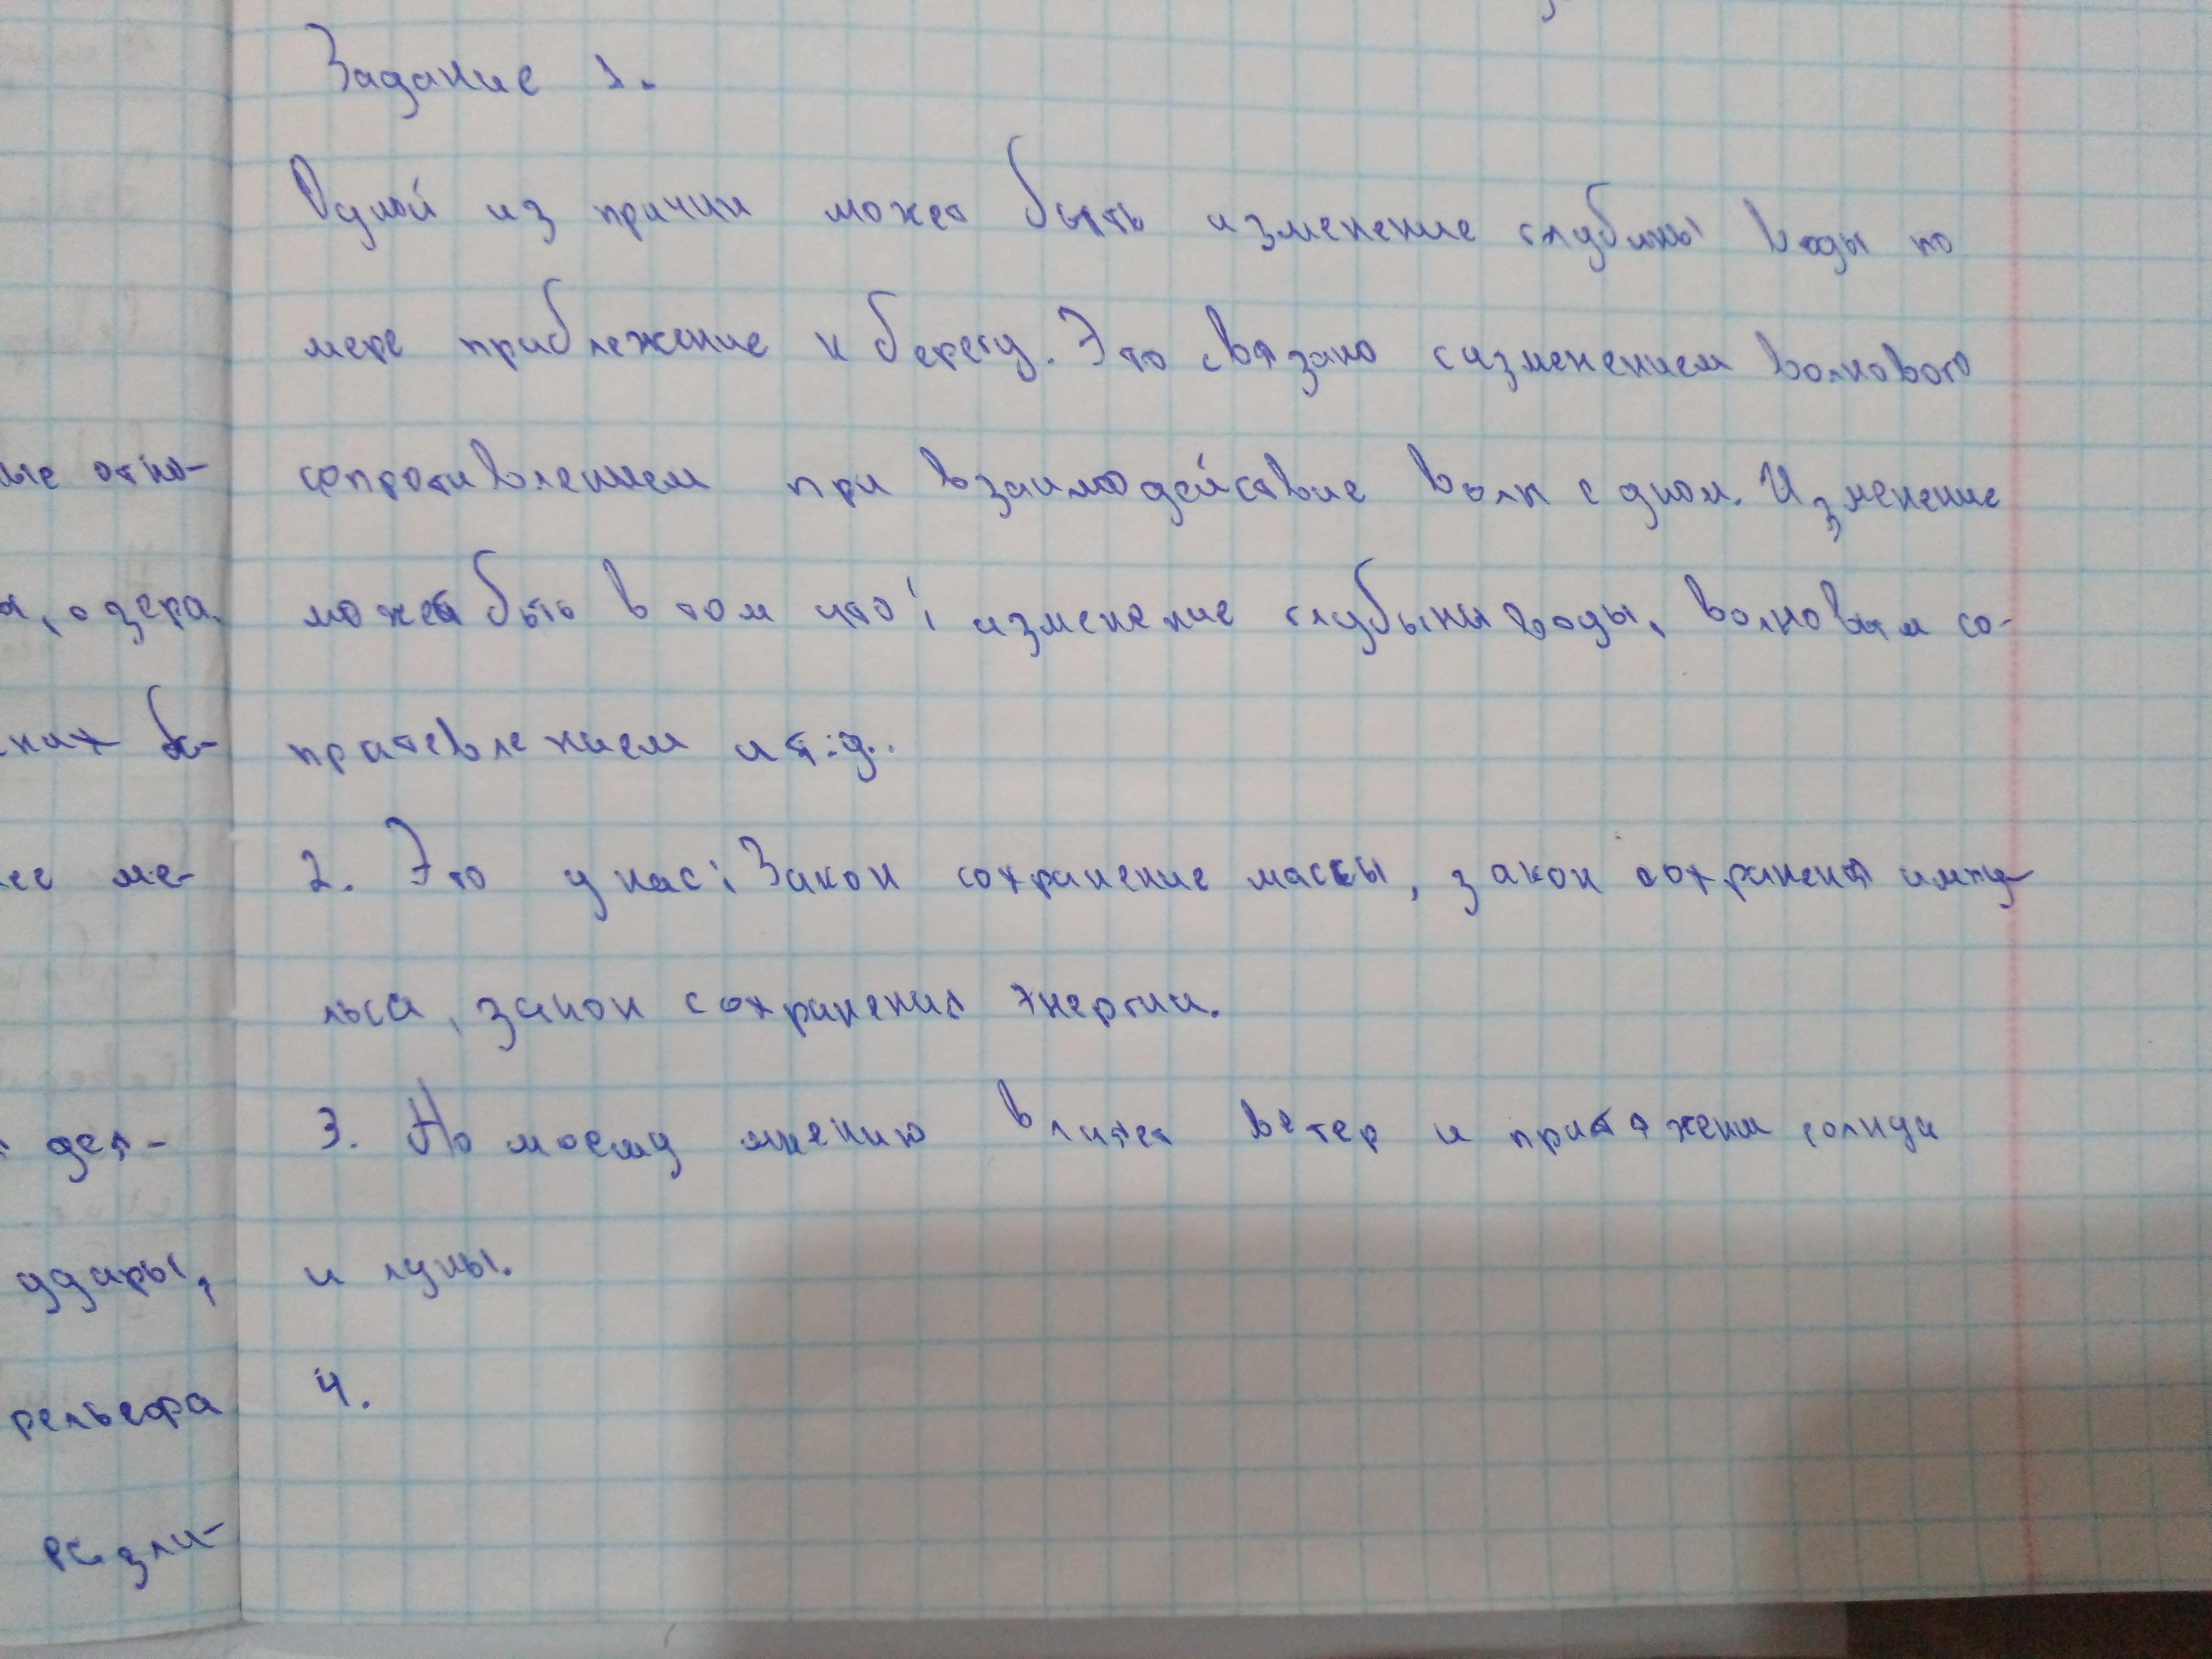 Задание 1.
Одной из причин может быть изменение глубины воды по
мере приближение к берегу. Это связано с изменением волнового
сопротивлением при взаимодействие волн с дном. Изменение
может быть в том что: изменение глубыни воды, волновым со-
пративлением и т.д..
2. Это у нас: Закон сохранение массы, закон сохранения импу-
льса, закон сохранения энергии.
3. По моему мнению влияет ветер и притяжени солнца
и луны.
4.
ые отно-
а, озера.
ких ба-
ее ме-
дел-
удары,
рельефа
разли-